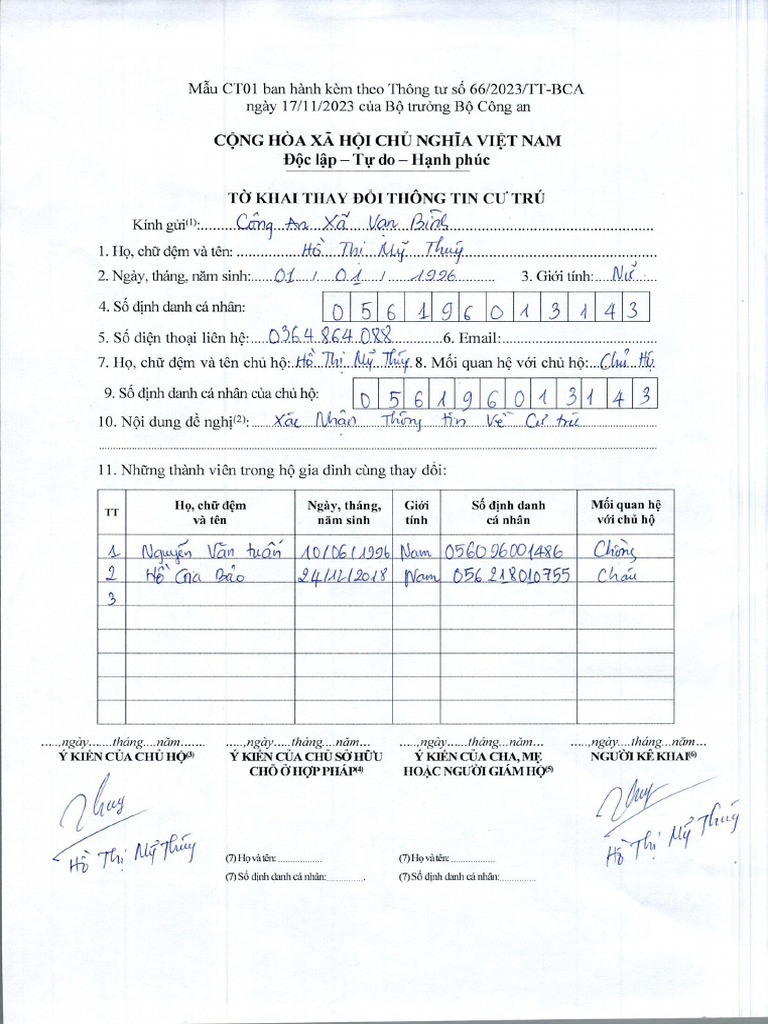 Mẫu CT01 ban hành kèm theo Thông tư số 66/2023/TT-BCA
ngày 17/11/2023 của Bộ trưởng Bộ Công an
CỘNG HÒA XÃ HỘI CHỦ NGHĨA VIỆT NAM
Độc lập – Tự do – Hạnh phúc
TỜ KHAI THAY ĐỔI THÔNG TIN CƯ TRÚ
Kính gửi(1):.......Công An Xã Vạn Bình
1. Họ, chữ đệm và tên: Hồ Thị Mỹ Thuý
2. Ngày, tháng, năm sinh: 01 / 01 / 1996 3. Giới tính: Nữ
4. Số định danh cá nhân: 0 5 6 1 9 6 0 1 3 1 4 3
5. Số điện thoại liên hệ: 0364.864.088 6. Email:
7. Họ, chữ đệm và tên chủ hộ: Hồ Thị Mỹ Thúy 8. Mối quan hệ với chủ hộ: Chủ Hộ
9. Số định danh cá nhân của chủ hộ: 0 5 6 1 9 6 0 1 3 1 4 3
10. Nội dung đề nghị(2): Xác Nhận Thông tin Về Cư trú
11. Những thành viên trong hộ gia đình cùng thay đổi:
TT Họ, chữ đệm và tên Ngày, tháng, năm sinh Giới tính Số định danh cá nhân Mối quan hệ với chủ hộ
1 Nguyễn Văn tuấn 10/06/1996 Nam 056096001486 Chồng
2 Hồ Gia Bảo 24/12/2018 Nam 056218010755 Cháu
3
.....,ngày.......tháng....năm...... .....,ngày.....tháng....năm.... .....,ngày.....tháng....năm.... .....,ngày.....tháng....năm...
Ý KIẾN CỦA CHỦ HỘ(3) Ý KIẾN CỦA CHỦ SỞ HỮU CHỖ Ở HỢP PHÁP(4) Ý KIẾN CỦA CHA, MẸ HOẶC NGƯỜI GIÁM HỘ(5) NGƯỜI KÊ KHAI(6)
Thuy Thuy
Hồ Thị Mỹ Thúy Hồ Thị Mỹ Thúy
(7) Họ và tên: ................ (7) Họ và tên: ................
(7) Số định danh cá nhân: ............. (7) Số định danh cá nhân: .............